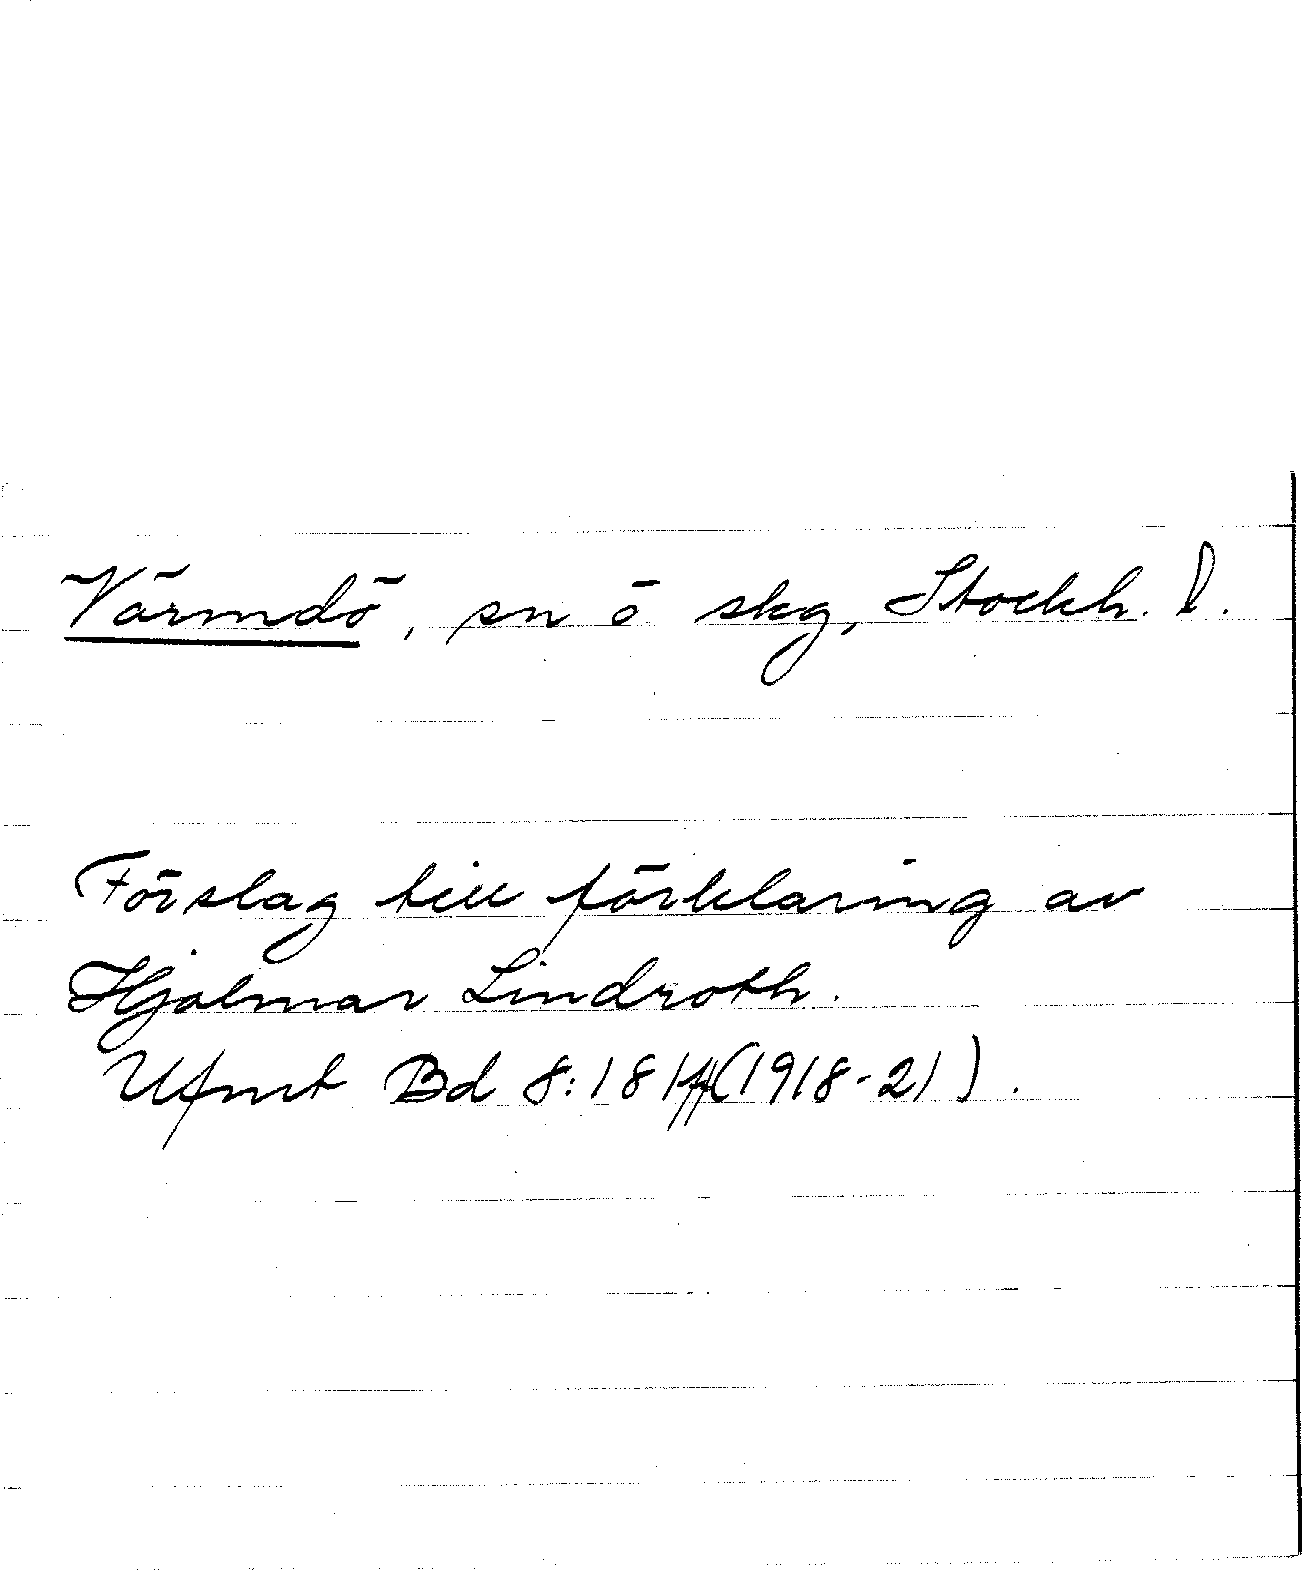 Värmdö, sn ö skg, Stockh. l.
Förslag till förklaring av
Hjalmar Lindroth.
Ufmt Bd 8: 181ff (1918-21).